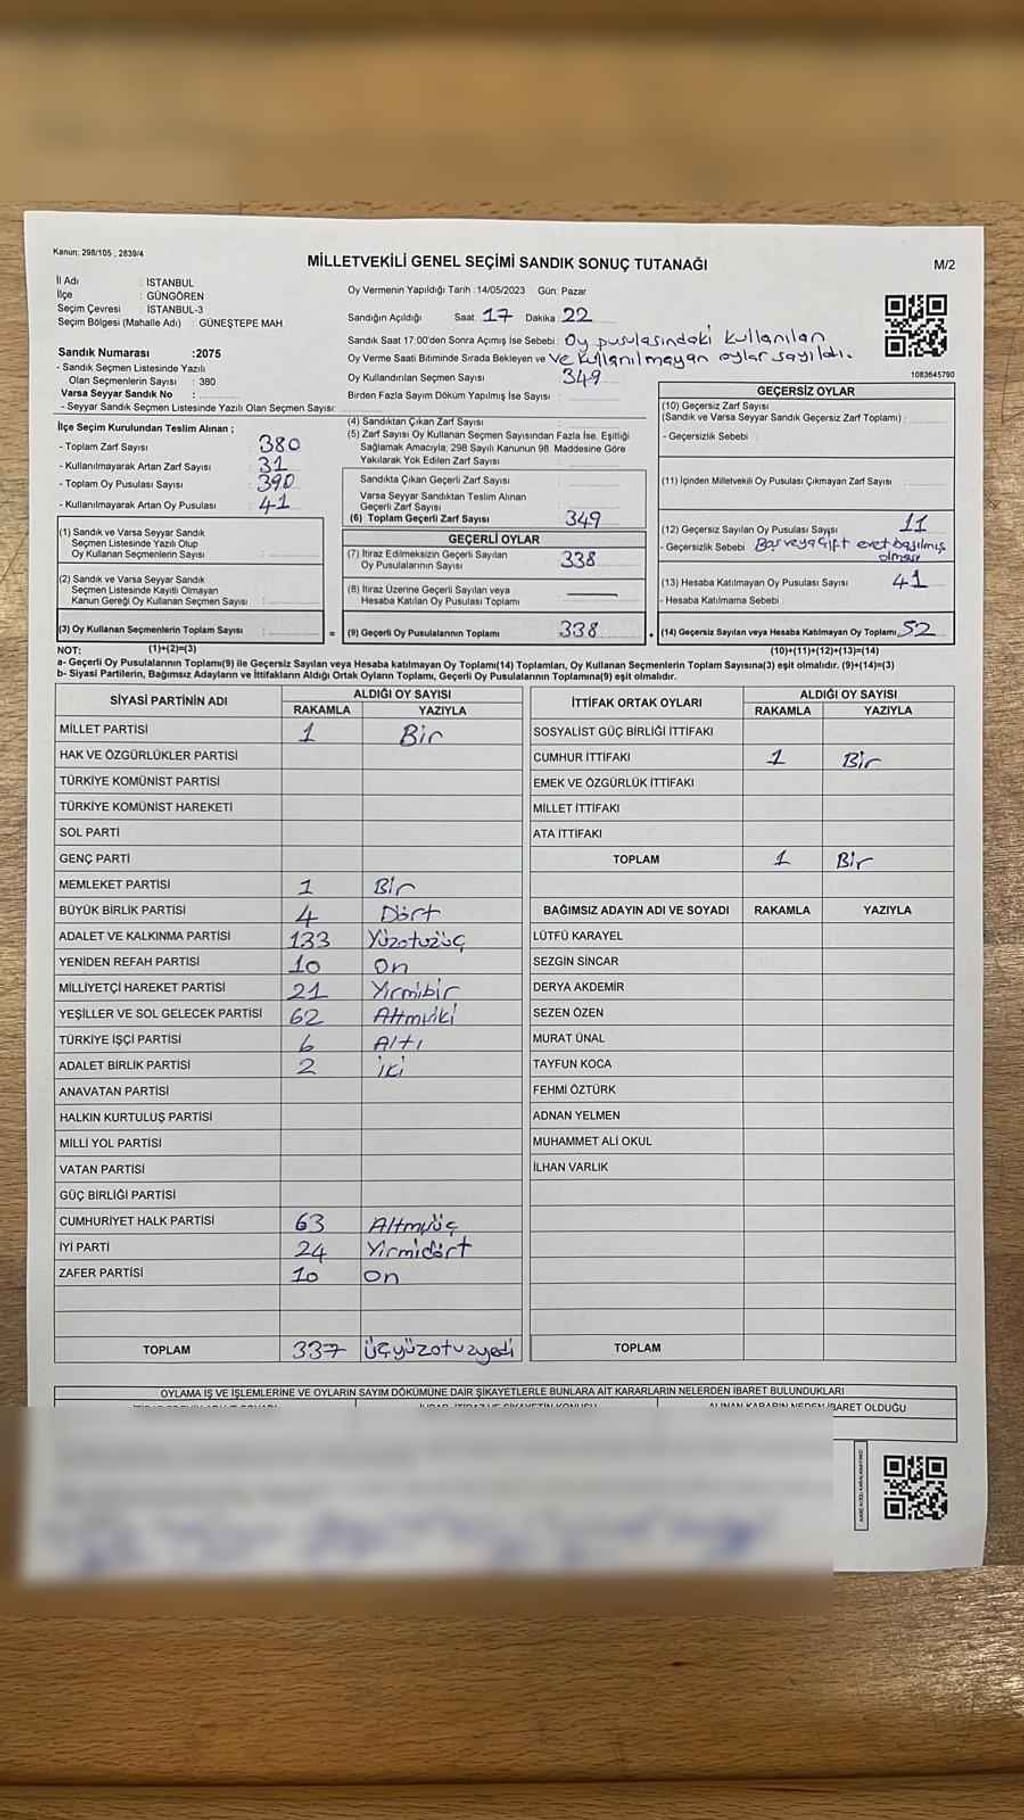 Kanun: 298/105 , 2839/4
MİLLETVEKİLİ GENEL SEÇİMİ SANDIK SONUÇ TUTANAĞI
M/2
İl Adı : İSTANBUL
İlçe : GÜNGÖREN
Seçim Çevresi : İSTANBUL-3
Seçim Bölgesi (Mahalle Adı) : GÜNEŞTEPE MAH
Sandık Numarası :2075
- Sandık Seçmen Listesinde Yazılı
Olan Seçmenlerin Sayısı : 380
Varsa Seyyar Sandık No :
- Seyyar Sandık Seçmen Listesinde Yazılı Olan Seçmen Sayısı:
Oy Vermenin Yapıldığı Tarih :14/05/2023 Gün: Pazar
Sandığın Açıldığı Saat: 17 Dakika 22
Sandık Saat 17:00'den Sonra Açımış İse Sebebi: Oy pusulasındaki kullanılan
Oy Verme Saati Bitiminde Sırada Bekleyen ve ve kullanılmayan oylar sayıldı.
Oy Kullandırılan Seçmen Sayısı 349
Birden Fazla Sayım Döküm Yapılmış İse Sayısı :
1083645790
İlçe Seçim Kurulundan Teslim Alınan ;
- Toplam Zarf Sayısı 380
- Kullanılmayarak Artan Zarf Sayısı 31
- Toplam Oy Pusulası Sayısı 390
- Kullanılmayarak Artan Oy Pusulası 41
(1) Sandık ve Varsa Seyyar Sandık
Seçmen Listesinde Yazılı Olup
Oy Kullanan Seçmenlerin Sayısı
(2) Sandık ve Varsa Seyyar Sandık
Seçmen Listesinde Kayıtlı Olmayan
Kanun Gereği Oy Kullanan Seçmen Sayısı
(3) Oy Kullanan Seçmenlerin Toplam Sayısı =
(4) Sandıktan Çıkan Zarf Sayısı
(5) Zarf Sayısı Oy Kullanan Seçmen Sayısından Fazla İse, Eşitliği
Sağlamak Amacıyla, 298 Sayılı Kanunun 98. Maddesine Göre
Yakılarak Yok Edilen Zarf Sayısı
Sandıkta Çıkan Geçerli Zarf Sayısı
Varsa Seyyar Sandıktan Teslim Alınan
Geçerli Zarf Sayısı
(6) Toplam Geçerli Zarf Sayısı 349
GEÇERLİ OYLAR
(7) İtiraz Edilmeksizin Geçerli Sayılan
Oy Pusulalarının Sayısı 338
(8) İtiraz Üzerine Geçerli Sayılan veya
Hesaba Katılan Oy Pusulası Toplamı —
(9) Geçerli Oy Pusulalarının Toplamı 338
GEÇERSİZ OYLAR
(10) Geçersiz Zarf Sayısı
(Sandık ve Varsa Seyyar Sandık Geçersiz Zarf Toplamı)
- Geçersizlik Sebebi :
(11) İçinden Milletvekili Oy Pusulası Çıkmayan Zarf Sayısı
(12) Geçersiz Sayılan Oy Pusulası Sayısı 11
- Geçersizlik Sebebi Boş veya çift evet basılmış
olması
(13) Hesaba Katılmayan Oy Pusulası Sayısı 41
- Hesaba Katılmama Sebebi
(14) Geçersiz Sayılan veya Hesaba Katılmayan Oy Toplamı 52
NOT: (1)+(2)=(3)
(10)+(11)+(12)+(13)=(14)
a- Geçerli Oy Pusulalarının Toplamı(9) ile Geçersiz Sayılan veya Hesaba katılmayan Oy Toplamı(14) Toplamları, Oy Kullanan Seçmenlerin Toplam Sayısına(3) eşit olmalıdır. (9)+(14)=(3)
b- Siyasi Partilerin, Bağımsız Adayların ve İttifakların Aldığı Ortak Oyların Toplamı, Geçerli Oy Pusulalarının Toplamına(9) eşit olmalıdır.
SİYASİ PARTİNİN ADI
ALDIĞI OY SAYISI
RAKAMLA YAZIYLA
MİLLET PARTİSİ 1 Bir
HAK VE ÖZGÜRLÜKLER PARTİSİ
TÜRKİYE KOMÜNİST PARTİSİ
TÜRKİYE KOMÜNİST HAREKETİ
SOL PARTİ
GENÇ PARTİ
MEMLEKET PARTİSİ 1 Bir
BÜYÜK BİRLİK PARTİSİ 4 Dört
ADALET VE KALKINMA PARTİSİ 133 Yüzotuzüç
YENİDEN REFAH PARTİSİ 10 On
MİLLİYETÇİ HAREKET PARTİSİ 21 Yirmibir
YEŞİLLER VE SOL GELECEK PARTİSİ 62 Altmıiki
TÜRKİYE İŞÇİ PARTİSİ 6 Altı
ADALET BİRLİK PARTİSİ 2 iki
ANAVATAN PARTİSİ
HALKIN KURTULUŞ PARTİSİ
MİLLİ YOL PARTİSİ
VATAN PARTİSİ
GÜÇ BİRLİĞİ PARTİSİ
CUMHURİYET HALK PARTİSİ 63 Altmıüç
İYİ PARTİ 24 Yirmidört
ZAFER PARTİSİ 10 On
TOPLAM 337 üçyüzotuzyedi
İTTİFAK ORTAK OYLARI
ALDIĞI OY SAYISI
RAKAMLA YAZIYLA
SOSYALİST GÜÇ BİRLİĞİ İTTİFAKI
CUMHUR İTTİFAKI 1 Bir
EMEK VE ÖZGÜRLÜK İTTİFAKI
MİLLET İTTİFAKI
ATA İTTİFAKI
TOPLAM 1 Bir
BAĞIMSIZ ADAYIN ADI VE SOYADI RAKAMLA YAZIYLA
LÜTFÜ KARAYEL
SEZGİN SİNCAR
DERYA AKDEMİR
SEZEN ÖZEN
MURAT ÜNAL
TAYFUN KOCA
FEHMİ ÖZTÜRK
ADNAN YELMEN
MUHAMMET ALİ OKUL
İLHAN VARLIK
TOPLAM
OYLAMA İŞ VE İŞLEMLERİNE VE OYLARIN SAYIM DÖKÜMÜNE DAİR ŞİKAYETLERLE BUNLARA AİT KARARLARIN NELERDEN İBARET BULUNDUKLARI
ALINAN KARARIN NEDEN İBARET OLDUĞU